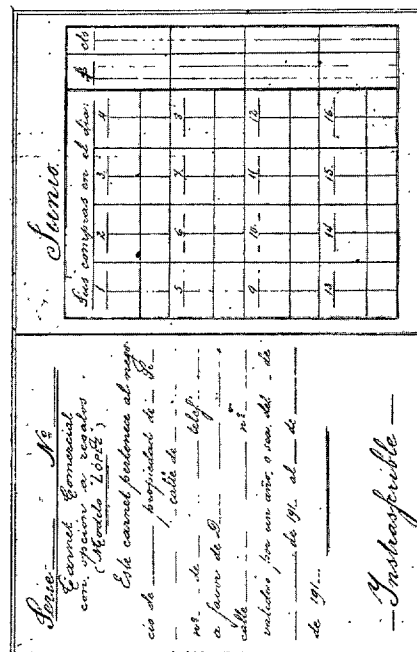 Serie Nº
Carnet Comercial
con opción a regalos.
(Modelo "LOPEZ")
Este carnet pertenece al nego-
cio de propiedad de
calle de
nº de teléfº
a favor de D.
calle nº
valedero, por un año, o sea, del de
de 191 al de
de 191
—Instrasferible—
Junio.
Sus compras en el dia:
1 2 3 4
5 6 7 8
9 10 11 12
13 14 15 16